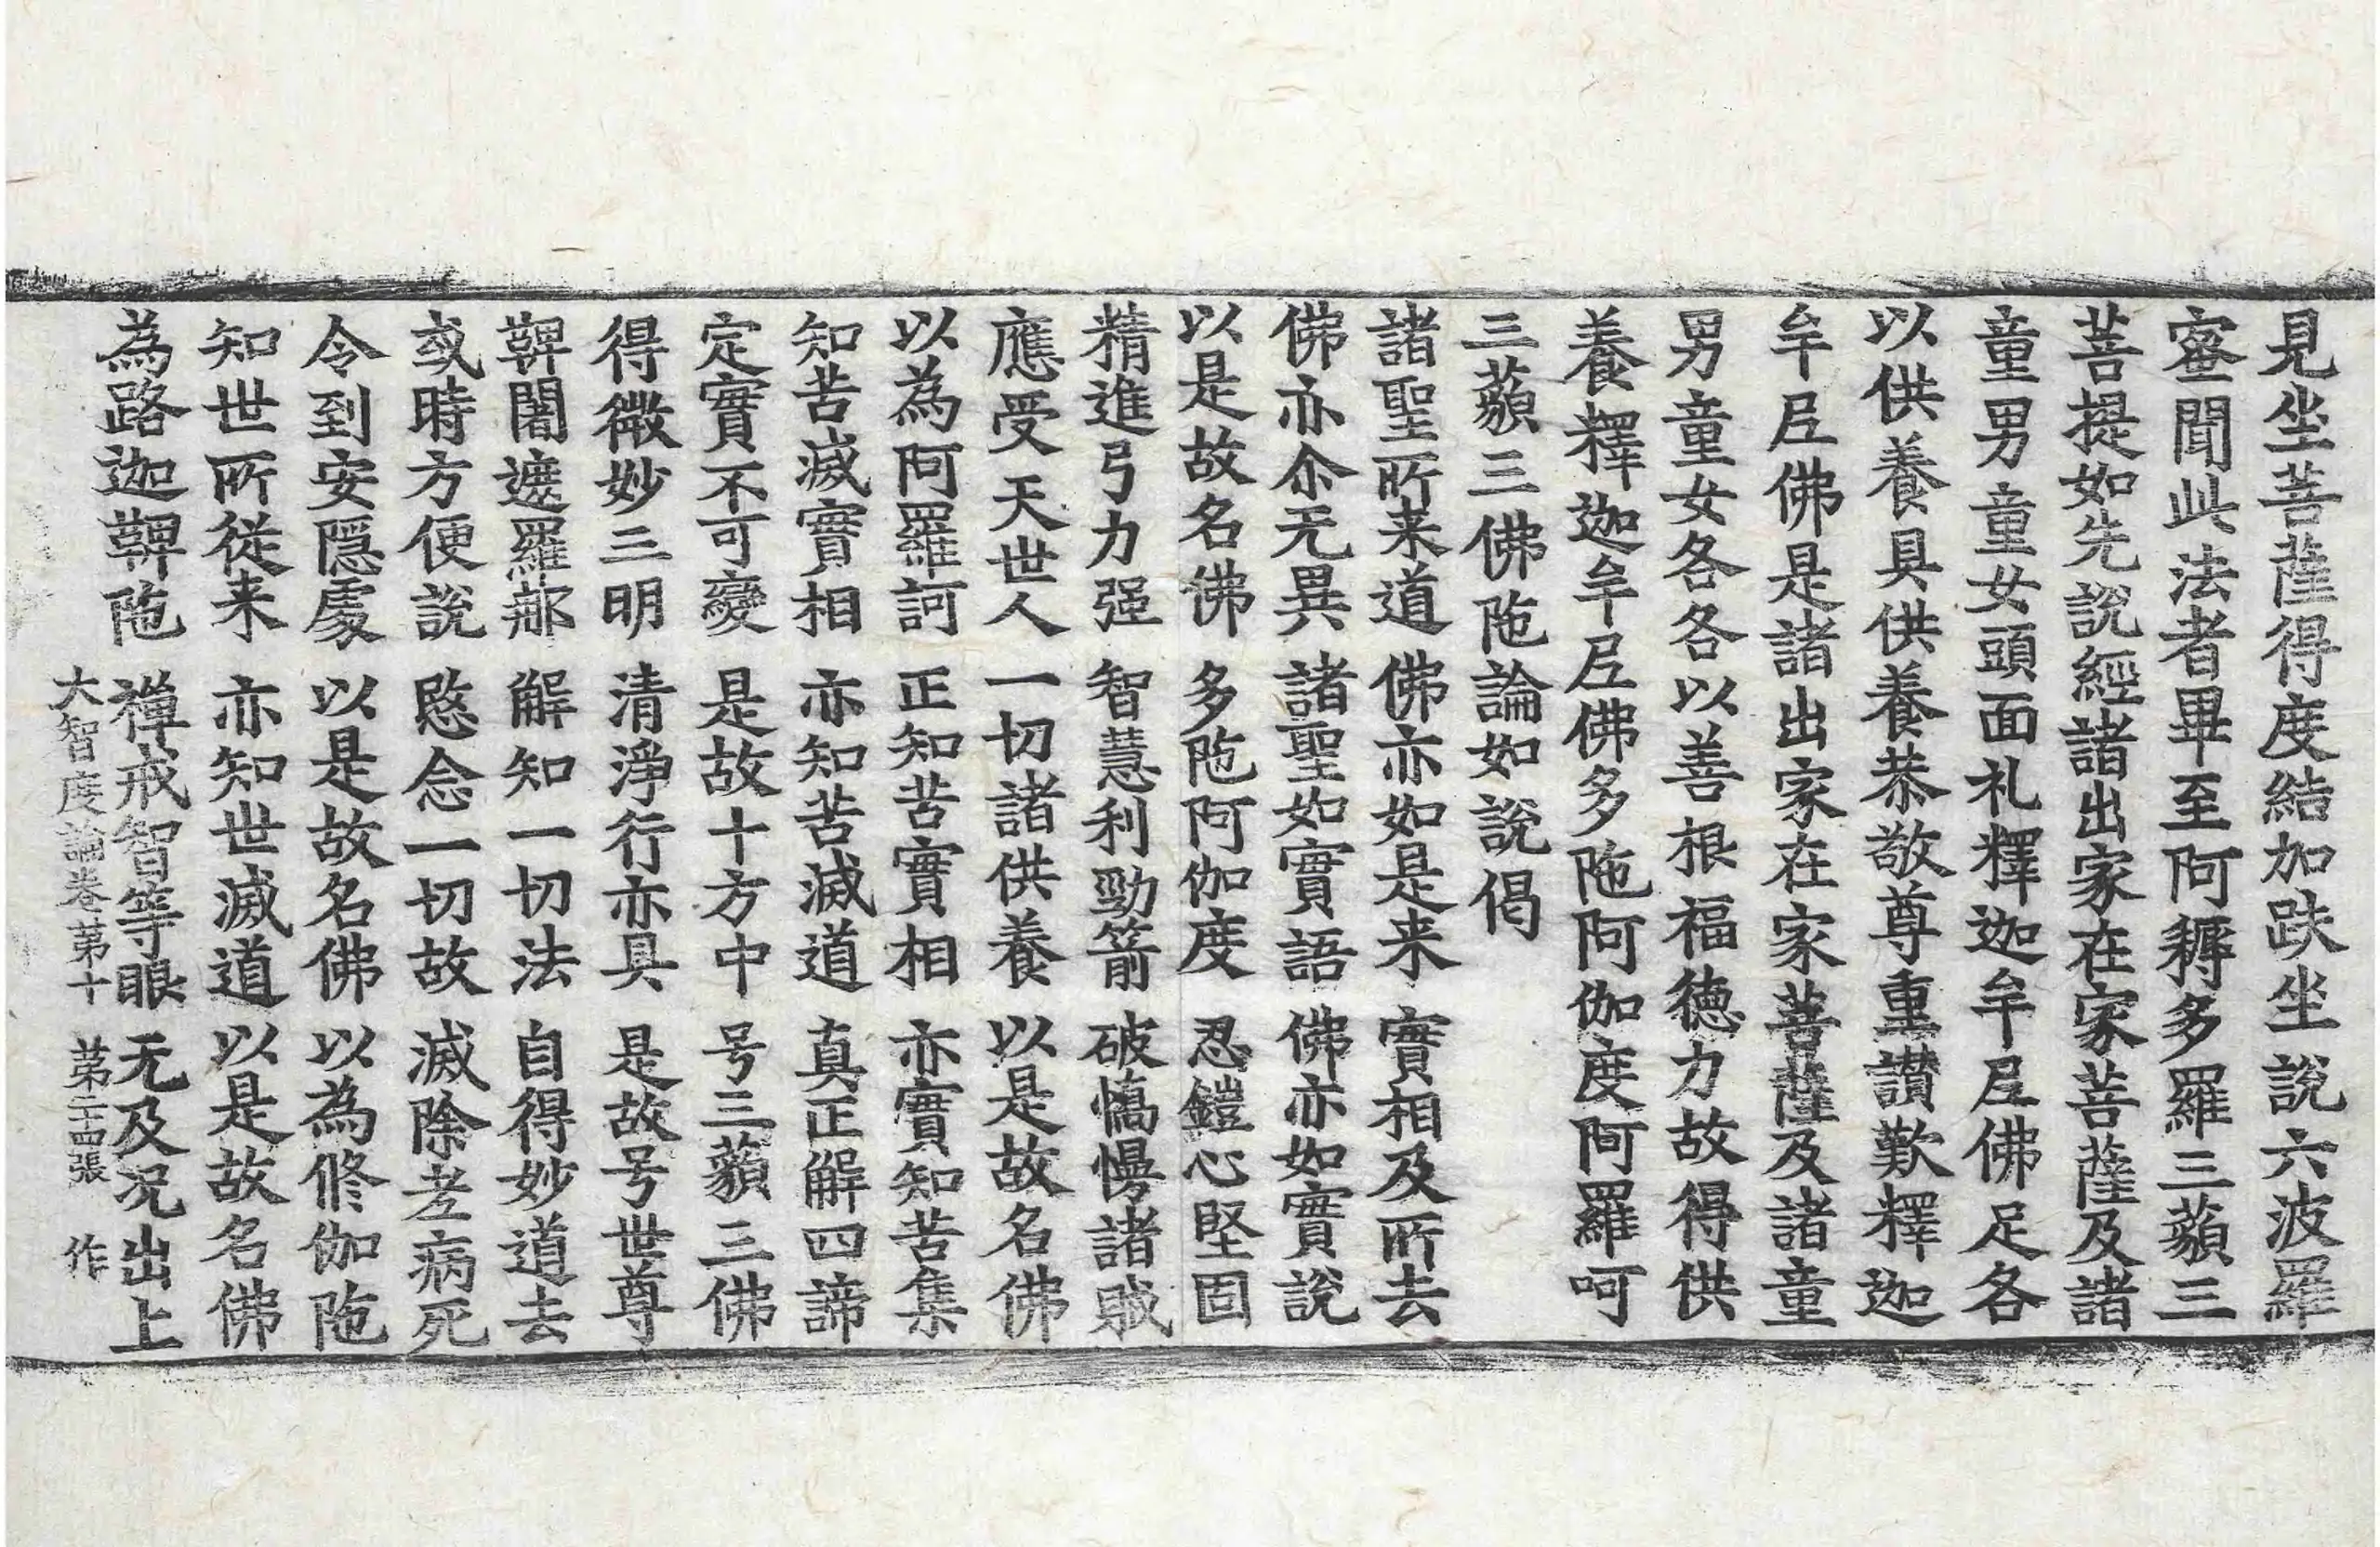 見坐菩薩得度結加趺坐說六波羅
蜜聞此法者畢至阿耨多羅三藐三
菩提如先說經諸出家在家菩薩及諸
童男童女頭面礼釋迦牟尼佛足各
以供養具供養恭敬尊重讃歎釋迦
牟尼佛是諸出家在家菩薩及諸童
男童女各各以善根福德力故得供
養釋迦牟尼佛多陁阿伽度阿羅呵
三藐三佛陁論如說偈
諸聖所来道 佛亦如是来 實相及所去
佛亦尒无異 諸聖如實語 佛亦如實說
以是故名佛 多陁阿伽度 忍鎧心堅固
精進弓力強 智慧利勁箭 破憍慢諸賊
應受天世人 一切諸供養 以是故名佛
以為阿羅訶 正知苦實相 亦實知苦集
知苦滅實相 亦知苦滅道 真正解四諦
定實不可變 是故十方中 号三藐三佛
得微妙三明 清淨行亦具 是故号世尊
鞞闍遮羅那 解知一切法 自得妙道去
或時方便說 愍念一切故 滅除老病死
令到安隱處 以是故名佛 以為修伽陁
知世所從来 亦知世滅道 以是故名佛
為路迦鞞陁 禪戒智等眼 无及況出上
大智度論卷第十 第二十四張 作